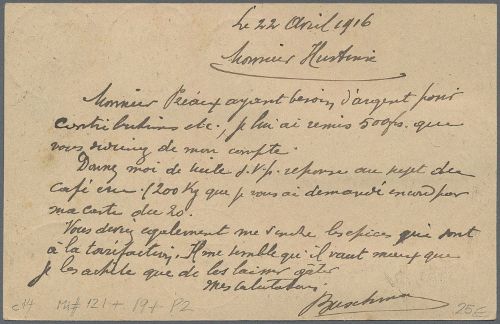 Le 22 Avril 1916
Monsieur Hustinie
Monsieur Préaux ayant besoin d'argent pour
contributions etc. je lui ai remis 500frs. que
vous de mon compte.
Donnez moi de suite s.v.p. reponse au sujet du
café cru (1200 Kg que je vous ai demandé encore par
ma carte du 20.
Vous devez également me vendre les épices qui sont
à la torréfaction, Il me semble qu'il vaut mieux que
je les achète que de les laisser gâter
Mes salutations
Buschman
c14 Mi# 121 + 19 + P2
25€